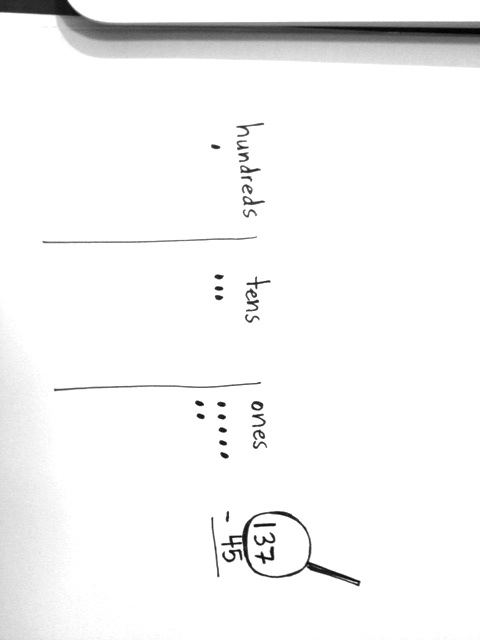 hundreds tens ones
137
- 45